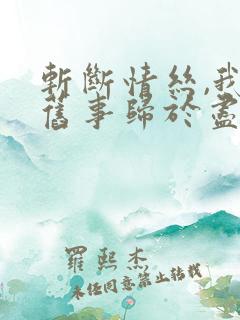 斬斷情絲,我
舊事歸於盡
羅熙杰
未经同意禁止转载